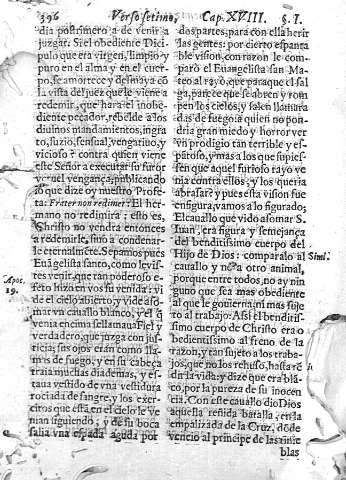 396 Verso septimo, Cap. XVIII. §. I.
dia postrimero a de venir a
juzgar. Si el obediente Dici
pulo que era virgen, limpio y
puro en el alma y en el cuer
po, se amortece y desmaya cō
la vista del juez que le viene a
redemir, que hara el inobe
diente pecador, rebelde a los
diuinos mandamientos, ingra
to, suzio, sensual, vengatiuo, y
vicioso? contra quien viene
este Señor a executar su furor
y cruel vengança, publicando
lo que dize oy nuestro Profe
ta: Frater non redimet: El her
mano no redimira: esto es,
Christo no vendra entonces
a redemirle, sino a condenar
le eternalmēte. Sepamos pues
Euāgelista santo, como le vis
tes venir, que tan poderoso e-
feto hizo en vos su venida: vi
de el cielo abierto, y vide aso-
mar vn cauallo blanco, y el q̄
venia encima se llamaua Fiel y
verdadero, que juzga con jus-
ticia; sus ojos eran como lla-
mas de fuego, y en su cabeça
traia muchas diademas, y es-
taua vestido de vna vestidura
rociada de sangre, y los exer-
citos que està en el cielo le ve
nian siguiendo; y de su boca
salia vna espada aguda por
Apoc.
19.
dos partes, para con ella herir
las gentes: por cierto espanta
ble vision, con razon le com-
parò el Euangelista san Ma-
teo al rayo, que para que el sal
ga, parece que se abren y rom
pen los cielos, y salen llamara
das de fuego: a quien no pon-
dria gran miedo y horror ver
vn prodigio tan terrible y es-
pātoso, y mas a los que supies-
sen que aquel furioso rayo ve
nia contra ellos, y los queria
abrasar? y pues esta vision fue
en figura, vamos a lo figurado;
El cauallo que vido asomar S.
Iuan, era figura y semejança
del benditissimo cuerpo del
Hijo de Dios: comparalo al
cauallo y no a otro animal,
porque entre todos, no ay nin
guno que sea mas obediente
al que le gouierna, ni mas suje
to al trabajo: Assi el benditis-
simo cuerpo de Christo era o
bedientissimo al freno de la
razon, y tan sujeto a los traba-
jos, que no los rehusò, hasta rē
dir la vida: y dize que era blā-
co, por la pureza de su inocen
cia. Con este cauallo dio Dios
aquella reñida batalla, en la
empalizada de la Cruz, dōde
vencio al principe de las tinie
blas
Simil.